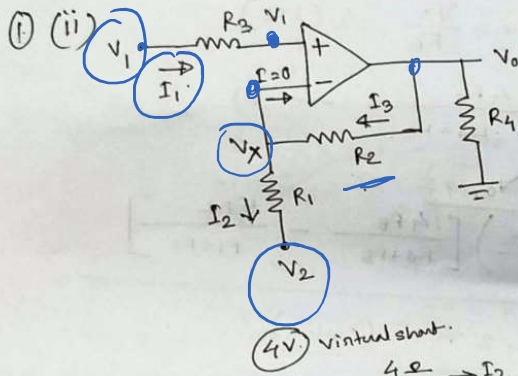 ① (ii) V₁ R₃ V₁ +
I₁ I=0 − V₀
I₃
Vx R₂ R₄
I₂ R₁
V₂
4V. virtual short.
4Ω → I₂